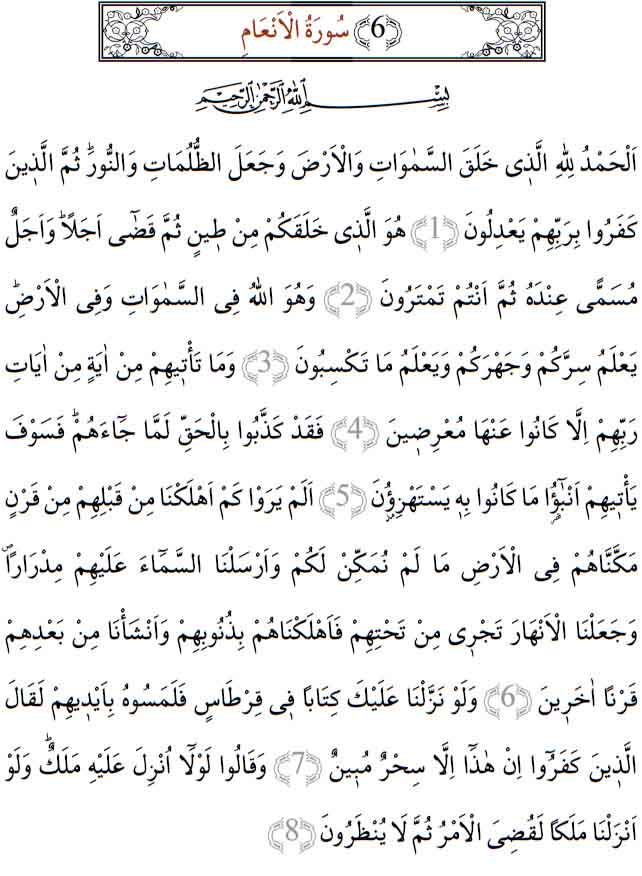 ﴿6﴾ سُورَةُ الْاَنْعَامِ
بِسْمِ اللّٰهِ الرَّحْمٰنِ الرَّحِيمِ
اَلْحَمْدُ لِلّٰهِ الَّذ۪ي خَلَقَ السَّمٰوَاتِ وَالْاَرْضَ وَجَعَلَ الظُّلُمَاتِ وَالنُّورَۜ ثُمَّ الَّذ۪ينَ
كَفَرُوا بِرَبِّهِمْ يَعْدِلُونَ ﴿1﴾ هُوَ الَّذ۪ي خَلَقَكُمْ مِنْ ط۪ينٍ ثُمَّ قَضٰٓى اَجَلًاۜ وَاَجَلٌ
مُسَمًّى عِنْدَهُ ثُمَّ اَنْتُمْ تَمْتَرُونَ ﴿2﴾ وَهُوَ اللّٰهُ فِي السَّمٰوَاتِ وَفِي الْاَرْضِۜ
يَعْلَمُ سِرَّكُمْ وَجَهْرَكُمْ وَيَعْلَمُ مَا تَكْسِبُونَ ﴿3﴾ وَمَا تَأْت۪يهِمْ مِنْ اٰيَةٍ مِنْ اٰيَاتِ
رَبِّهِمْ اِلَّا كَانُوا عَنْهَا مُعْرِض۪ينَ ﴿4﴾ فَقَدْ كَذَّبُوا بِالْحَقِّ لَمَّا جَٓاءَهُمْۜ فَسَوْفَ
يَأْت۪يهِمْ اَنْبٰٓؤُ۬ا مَا كَانُوا بِه۪ يَسْتَهْزِؤُ۫نَ ﴿5﴾ اَلَمْ يَرَوْا كَمْ اَهْلَكْنَا مِنْ قَبْلِهِمْ مِنْ قَرْنٍ
مَكَّنَّاهُمْ فِي الْاَرْضِ مَا لَمْ نُمَكِّنْ لَكُمْ وَاَرْسَلْنَا السَّمَٓاءَ عَلَيْهِمْ مِدْرَارًاۖ
وَجَعَلْنَا الْاَنْهَارَ تَجْر۪ي مِنْ تَحْتِهِمْ فَاَهْلَكْنَاهُمْ بِذُنُوبِهِمْ وَاَنْشَأْنَا مِنْ بَعْدِهِمْ
قَرْنًا اٰخَر۪ينَ ﴿6﴾ وَلَوْ نَزَّلْنَا عَلَيْكَ كِتَابًا ف۪ي قِرْطَاسٍ فَلَمَسُوهُ بِاَيْد۪يهِمْ لَقَالَ
الَّذ۪ينَ كَفَرُٓوا اِنْ هٰذَٓا اِلَّا سِحْرٌ مُب۪ينٌ ﴿7﴾ وَقَالُوا لَوْلَٓا اُنْزِلَ عَلَيْهِ مَلَكٌۜ وَلَوْ
اَنْزَلْنَا مَلَكًا لَقُضِيَ الْاَمْرُ ثُمَّ لَا يُنْظَرُونَ ﴿8﴾